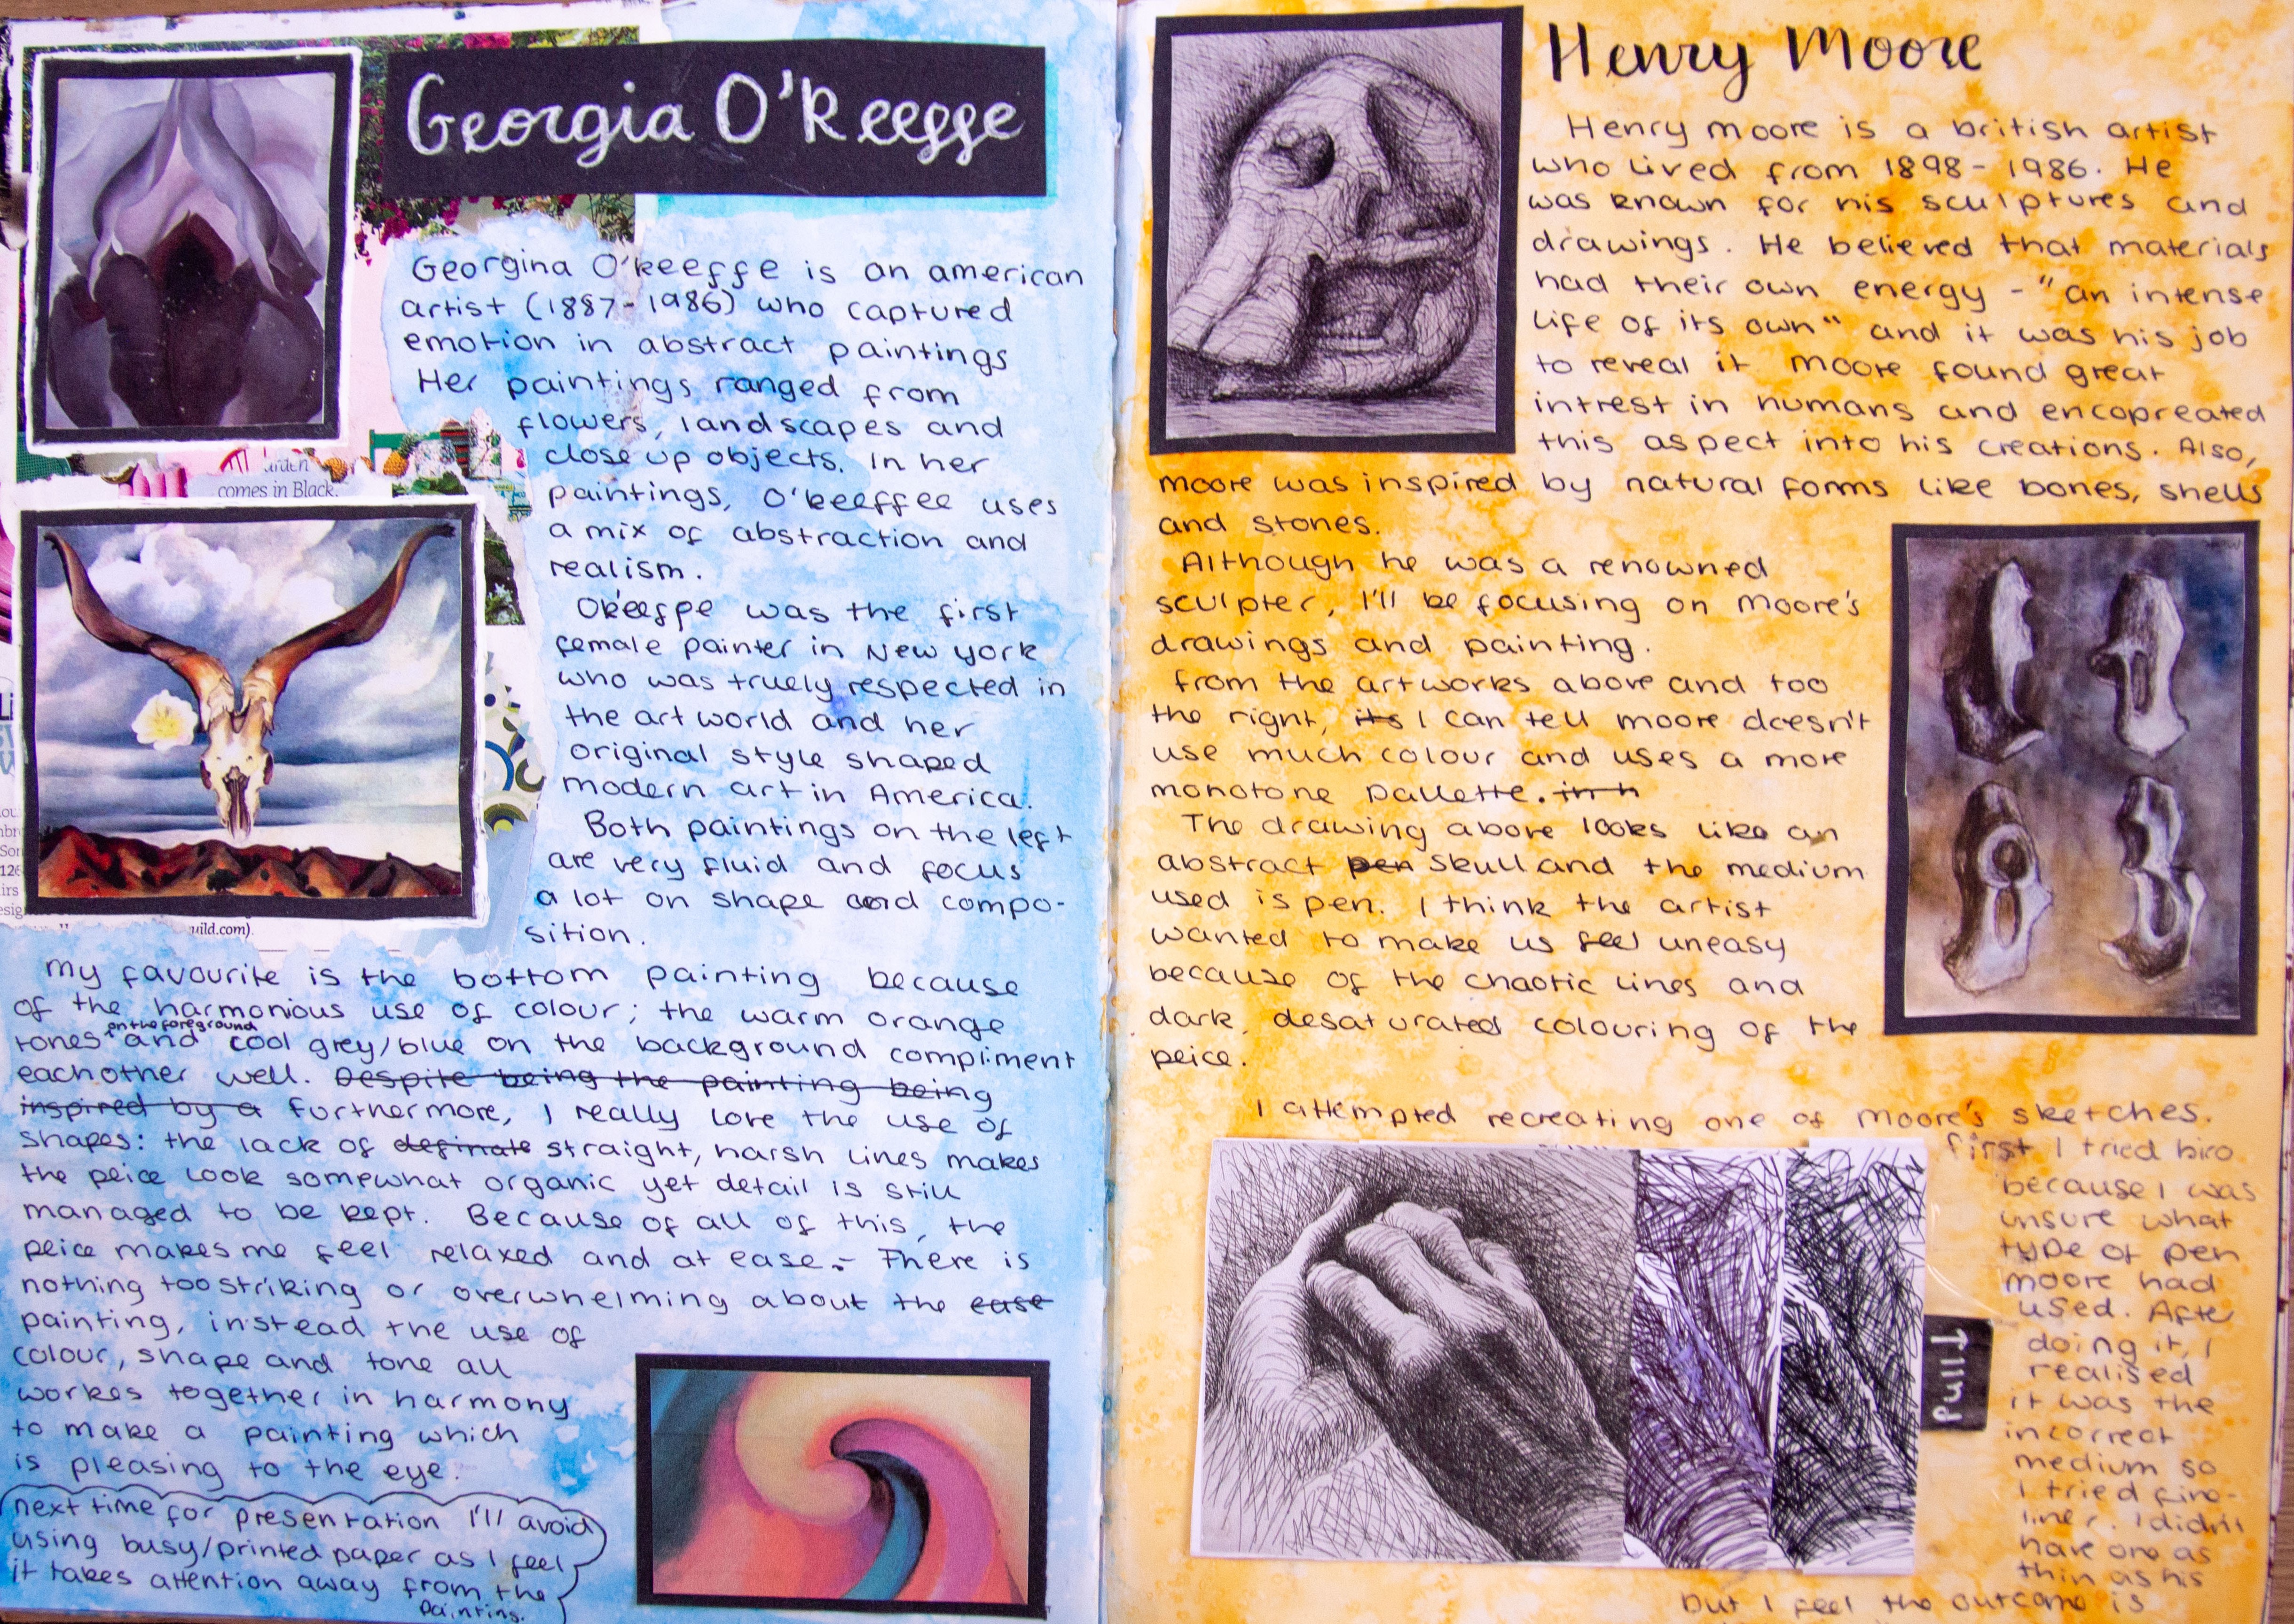 Georgia O'Keeffe
Georgina O'keeffe is an american
artist (1887-1986) who captured
emotion in abstract paintings
Her paintings ranged from
flowers, landscapes and
close up objects. In her
paintings, O'keeffee uses
a mix of abstraction and
realism.
O'keeffe was the first
female painter in New york
who was truely respected in
the art world and her
original style shaped
modern art in America.
Both paintings on the left
are very fluid and focus
a lot on shape and compo-
sition.
arden
comes in Black.
uild.com).
my favourite is the bottom painting because
of the harmonious use of colour; the warm orange
on the foreground
tones and cool grey/blue on the background compliment
eachother well. Despite being the painting being
inspired by a furthermore, I really love the use of
shapes: the lack of definate straight, harsh lines makes
the peice look somewhat organic yet detail is still
managed to be kept. Because of all of this, the
peice makes me feel relaxed and at ease - There is
nothing too striking or overwhelming about the ease
painting, instead the use of
colour, shape and tone all
workes together in harmony
to make a painting which
is pleasing to the eye.
next time for presentation I'll avoid
using busy/printed paper as I feel
it takes attention away from the
painting.
Henry Moore
Henry moore is a british artist
who lived from 1898-1986. He
was known for his sculptures and
drawings. He believed that materials
had their own energy - "an intense
life of its own" and it was his job
to reveal it moore found great
intrest in humans and encopreated
this aspect into his creations. Also,
moore was inspired by natural forms like bones, shells
and stones.
Although he was a renowned
sculpter, I'll be focusing on moore's
drawings and painting.
from the artworks above and too
the right, its I can tell moore doesn't
use much colour and uses a more
monotone pallette. in h
The drawing above looks like an
abstract pen skull and the medium
used is pen. I think the artist
wanted to make us feel uneasy
because of the chaotic lines and
dark, desaturated colouring of the
peice.
I attempted recreating one of moore's sketches.
first I tried biro
because I was
unsure what
type of pen
moore had
used. After
doing it, I
realised
it was the
incorrect
medium so
I tried fine-
liner. I didn't
have one as
thin as his
but I feel the outcome is
pull